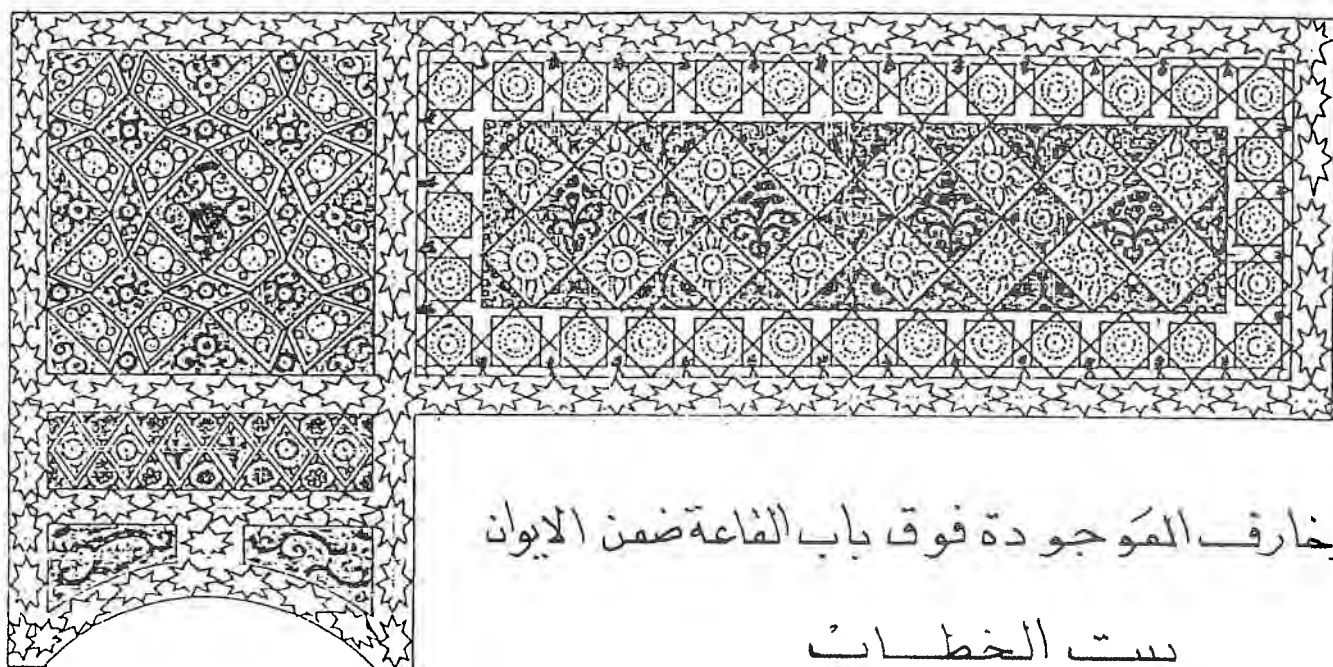 خارف الموجودة فوق باب القاعة ضمن الايوان
بيت الخطاب